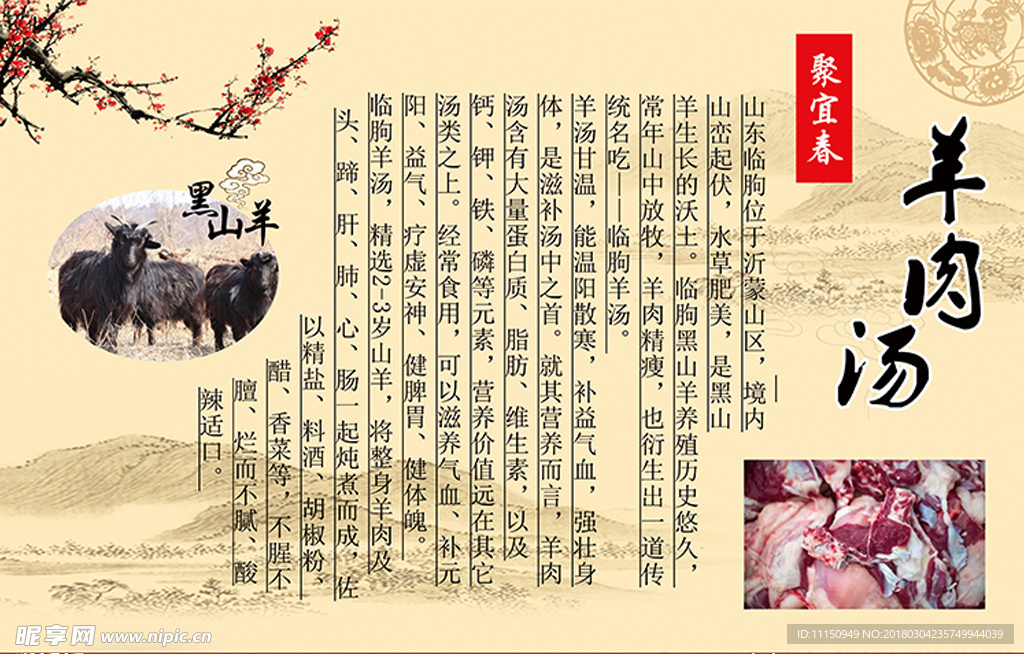 羊肉汤
聚宜春
山东临朐位于沂蒙山区，境内
山峦起伏，水草肥美，是黑山
羊生长的沃土。临朐黑山羊养殖历史悠久，
常年山中放牧，羊肉精瘦，也衍生出一道传
统名吃——临朐羊汤。
羊汤甘温，能温阳散寒，补益气血，强壮身
体，是滋补汤中之首。就其营养而言，羊肉
汤含有大量蛋白质、脂肪、维生素，以及
钙、钾、铁、磷等元素，营养价值远在其它
汤类之上。经常食用，可以滋养气血、补元
阳、益气、疗虚安神、健脾胃、健体魄。
临朐羊汤，精选2-3岁山羊，将整身羊肉及
头、蹄、肝、肺、心、肠一起炖煮而成，佐
以精盐、料酒、胡椒粉、
醋、香菜等，不腥不
膻、烂而不腻、酸
辣适口。
黑山羊
昵享网 www.nipic.cn
ID:11150949 NO:20180304235749944039